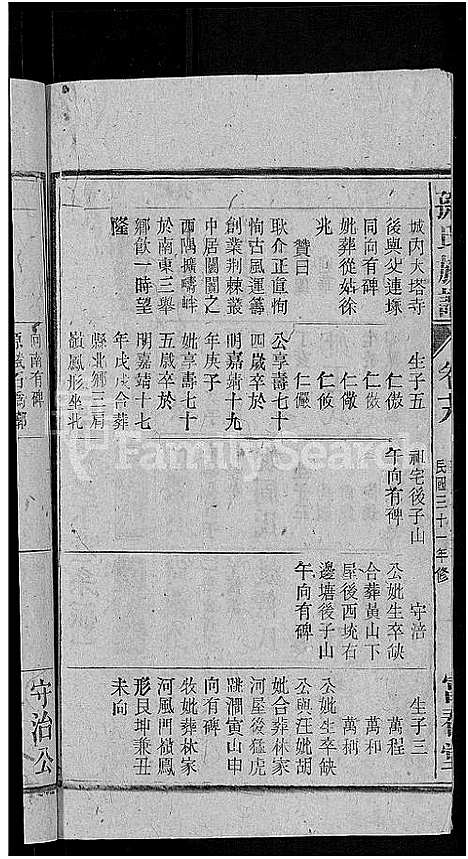 城內大塔寺
後與父連塚
同向有碑
妣葬從姑徐
兆
贊曰
耿介正直恂
恂古風運籌
創業荊棘叢
中居闤闠之
西隅擴疇畔
於南東三舉
鄉飲一時望
隆
生子五
仁傲
仁倣
仁儆
仁攸
仁儼
公享壽七十
四歲卒於
明嘉靖十九
年庚子
妣享壽七十
五歲卒於
明嘉靖十七
年戊戌合葬
縣北鄉三肩
嶺鳳形坐北
向南有碑
祖宅後子山
午向有碑
守涪
公妣生卒缺
合葬黃山下
屋後西坑右
邊塘後子山
午向有碑
生子三
萬程
萬和
萬稱
公妣生卒缺
公與汪妣胡
妣合葬林家
河屋後猛虎
跳澗寅山申
向有碑
牧妣葬林家
河風門嶺鳳
形艮坤兼丑
未向
民國三十一年修
守治公
FamilySearch